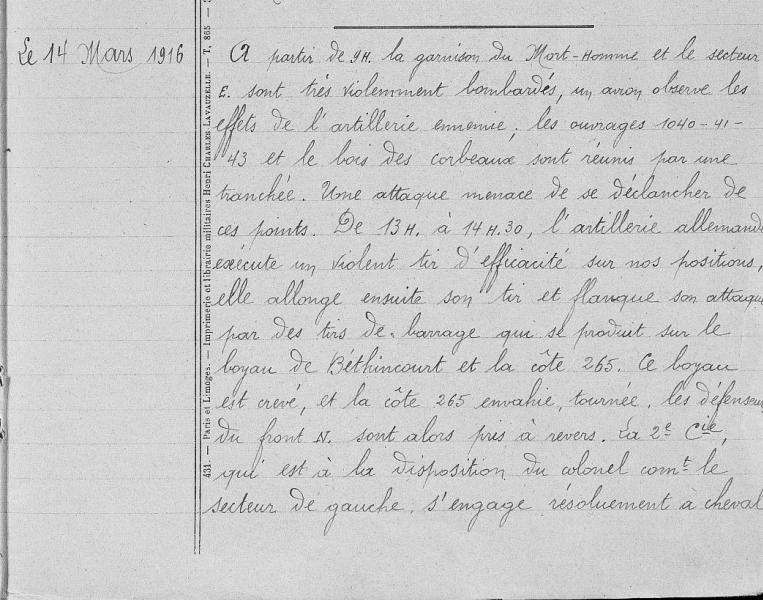 Le 14 Mars 1916
A partir de 9H. la garnison du Mort-Homme et le secteur
E. sont très violemment bombardés, un avion observe les
effets de l'artillerie ennemie, les ouvrages 1040-41-
43 et le bois des corbeaux sont réunis par une
tranchée. Une attaque menace de se déclancher de
ces points. De 13H. à 14H.30, l'artillerie allemande
exécute un violent tir d'efficacité sur nos positions,
elle allonge ensuite son tir et flanque son attaque
par des tirs de barrage qui se produit sur le
boyau de Béthincourt et la côte 265. Ce boyau
est crevé, et la côte 265 envahie, tournée, les défenseurs
du front N. sont alors pris à revers. La 2e Cie,
qui est à la disposition du colonel comt le
secteur de gauche, s'engage résoluement à cheval
431. — Paris et Limoges. — Imprimerie et librairie militaires Henri CHARLES-LAVAUZELLE. — T. 865 —